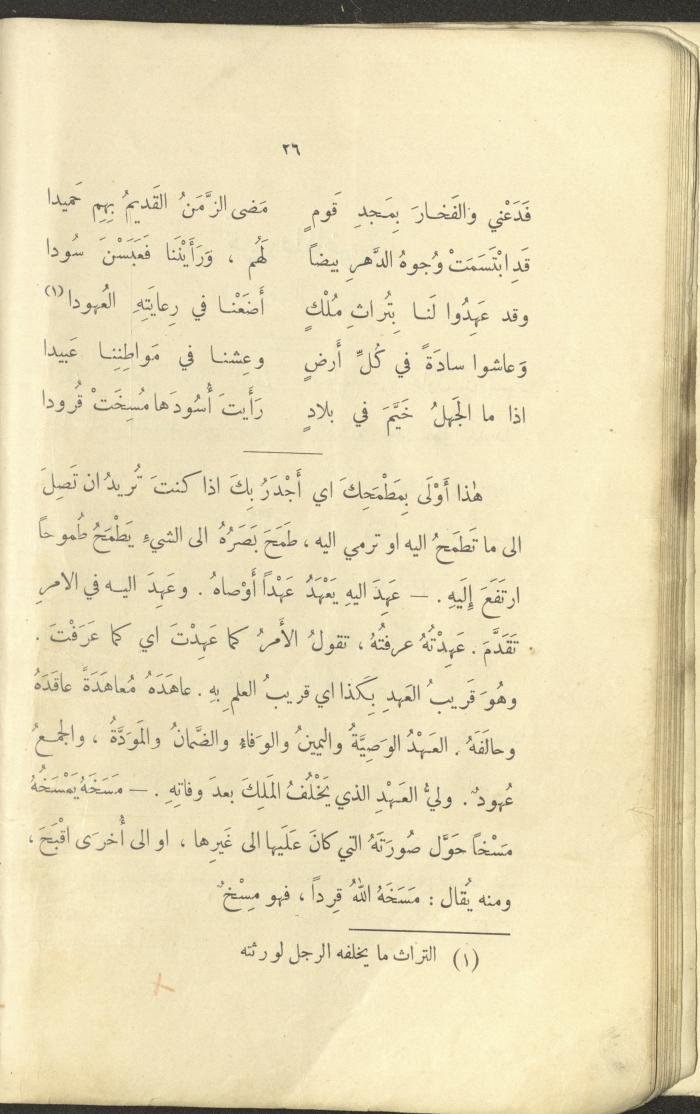 ٢٦
فَدَعْني والفَخـارَ بِمَجدِ قَومٍ مَضى الزَّمَنُ القَديمُ بِهِم حَميدا
قَدِ ابْتَسَمَتْ وُجوهُ الدَّهرِ بيضاً لَهُم ، وَرَأَيْنَنا فَعَبَسْنَ سُودا
وقد عَهِدُوا لَنـا بِتُراثِ مُلْكٍ أَضَعْنـا في رِعايَتِهِ العُهودا (١)
وَعاشوا سادَةً في كُلِّ أَرضٍ وعِشنـا في مَواطِنِنـا عَبيدا
اذا ما الجَهلُ خَيَّمَ في بلادٍ رَأَيتَ أُسُودَها مُسِخَتْ قُرودا
هٰذا أَوْلَى بِمَطْمَحِكَ اي أَجْدَرُ بِكَ اذا كنتَ تُريدُ ان تَصِلَ
الى ما تَطمَحُ اليه او ترمي اليه ، طَمَحَ بَصَرُهُ الى الشيءِ يَطْمَحُ طُموحاً
ارتَفَعَ إِلَيهِ . — عَهِدَ اليهِ يَعْهَدُ عَهْداً أَوْصاهُ . وعَهِدَ اليـه في الامرِ
تَقَدَّمَ . عَهِدْتُهُ عرفتُهُ ، تقولُ الأَمرُ كما عَهِدْتَ اي كما عَرَفْتَ .
وهُوَ قَريبُ العَهدِ بِكَذا اي قريبُ العلمِ بِهِ . عاهَدَهُ مُعاهَدَةً عاقَدَهُ
وحالَفَهُ . العَـهْدُ الوَصِيَّةُ واليمينُ والوَفاءِ والضَّمانُ والمَوَدَّةُ ، والجمـعُ
عُهودٌ . وليُّ العَـهْدِ الذي يَخْلُفُ المَلِكَ بعدَ وفاتِهِ . — مَسَخَهُ يَمْسَخُهُ
مَسْخاً حَوَّل صُورَتَهُ التي كانَ عَلَيها الى غَيرِها ، او الى أُخرَى اقْبَحَ ،
ومنه يُقال : مَسَخَهُ اللهُ قِرداً ، فهو مِسْخٌ
(١) التراث ما يخلفه الرجل لورثته